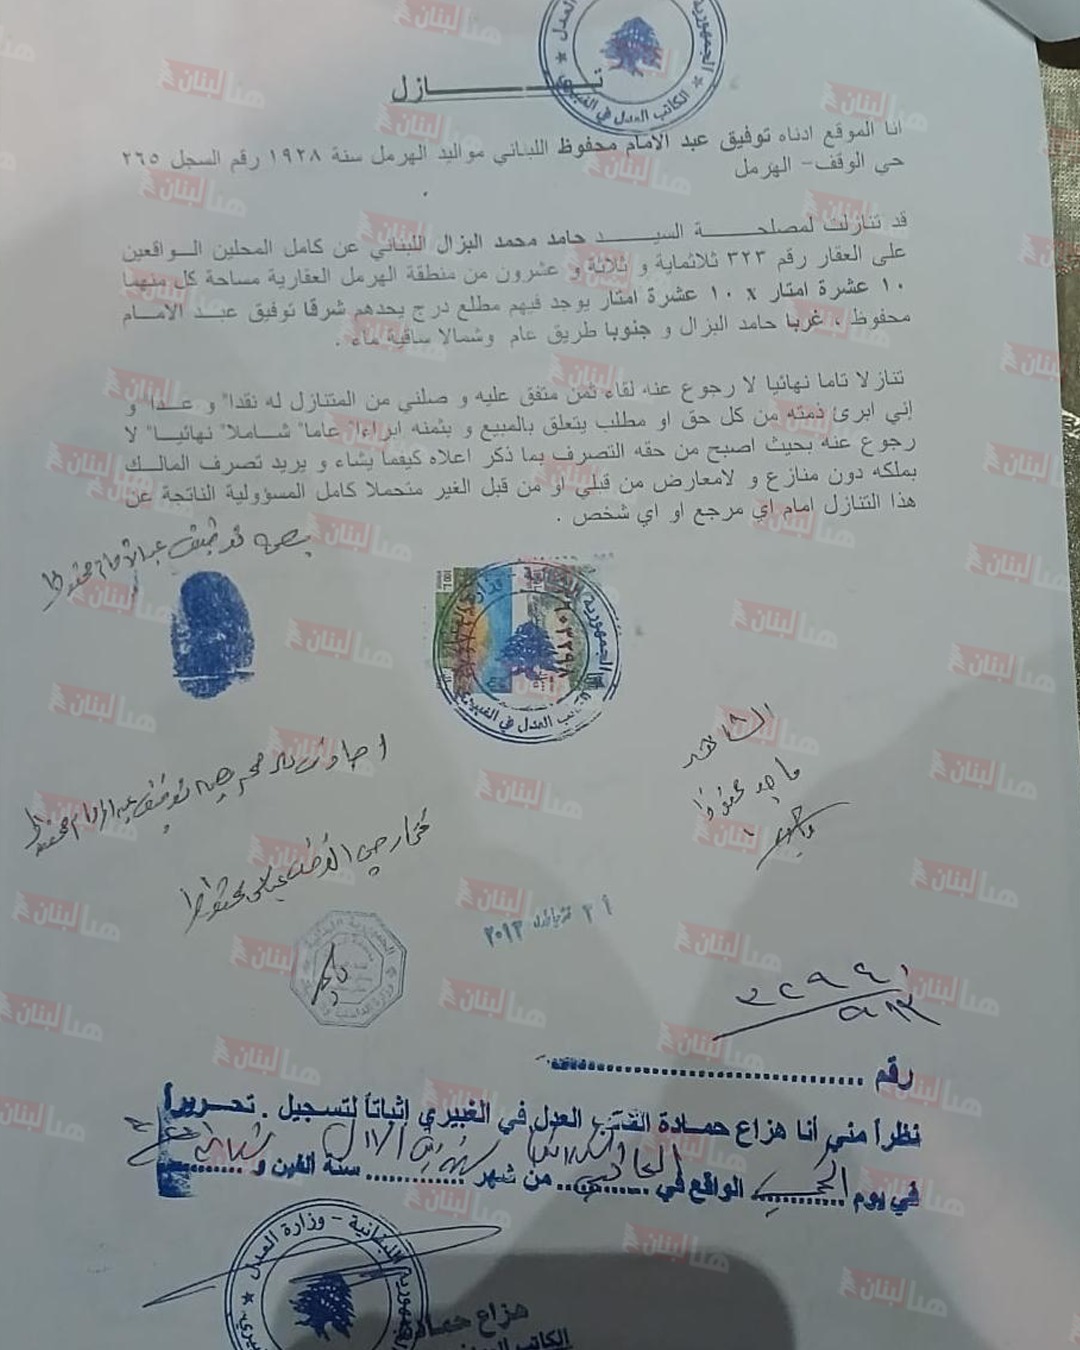 تنازل
انا الموقع ادناه توفيق عبد الامام محفوظ اللبناني مواليد الهرمل سنة ١٩٢٨ رقم السجل ٢٦٥
حي الوقف- الهرمل
قد تنازلت لمصلحة السيد حامد محمد البزال اللبناني عن كامل المحلين الواقعين
على العقار رقم ٣٢٣ ثلاثماية و ثلاثة و عشرون من منطقة الهرمل العقارية مساحة كل منهما
١٠ عشرة امتار x ١٠ عشرة امتار يوجد فيهم مطلع درج يحدهم شرقا توفيق عبد الامام
محفوظ ، غربا حامد البزال و جنوبا طريق عام وشمالا ساقية ماء .
تنازلا تاما نهائيا لا رجوع عنه لقاء ثمن متفق عليه و صلني من المتنازل له نقدا" و عدا" و
إني ابرئ ذمته من كل حق او مطلب يتعلق بالمبيع و بثمنه ابراءا" عاما" شاملا" نهائيا" لا
رجوع عنه بحيث اصبح من حقه التصرف بما ذكر اعلاه كيفما يشاء و يريد تصرف المالك
بملكه دون منازع و لامعارض من قبلي او من قبل الغير متحملا كامل المسؤولية الناتجة عن
هذا التنازل امام اي مرجع او اي شخص .
بصمة توفيق عبد الامام محفوظ
الجمهورية اللبنانية - وزارة العدل
الكاتب العدل في الغبيري
الشاهد
ماجد محفوظ
توفيق عبد الامام محفوظ
مختار حي الوقف عباس محفوظ
٢٠١٢
رقم
نظراً مني أنا هزاع حمادة الكاتب العدل في الغبيري إثباتاً لتسجيل . تحريراً
في يوم الواقع في من شهر سنة الفين و
الجمهورية اللبنانية - وزارة العدل
هزاع حمادة
الكاتب العدل
هنا لبنان